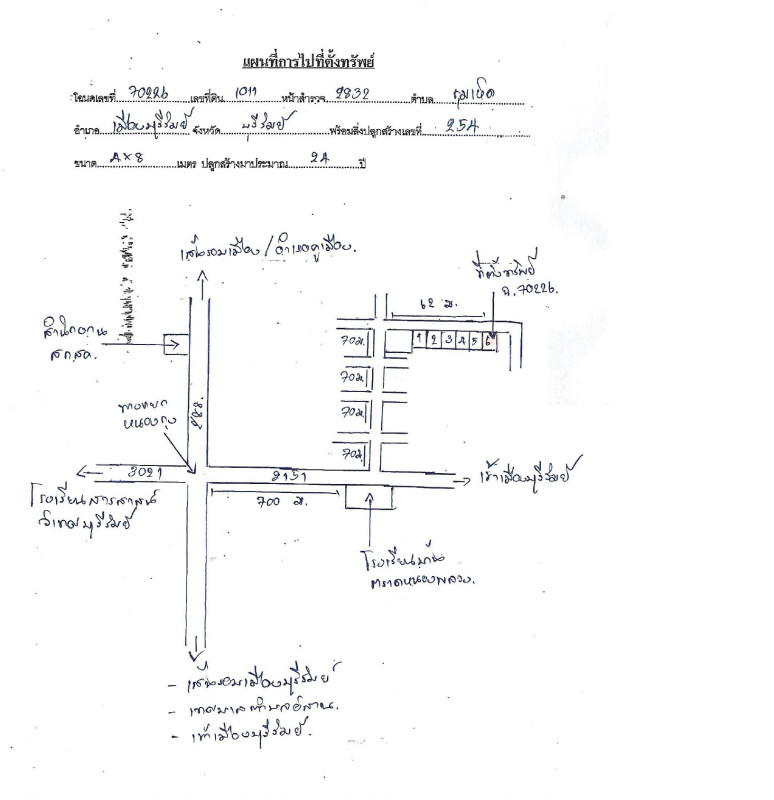 แผนที่การไปที่ตั้งทรัพย์
โฉนดเลขที่ 70226 เลขที่ดิน 1011 หน้าสำรวจ 2832 ตำบล เสม็ด
อำเภอ เมืองบุรีรัมย์ จังหวัด บุรีรัมย์ พร้อมสิ่งปลูกสร้างเลขที่ 254
ขนาด 4×8 เมตร ปลูกสร้างมาประมาณ 24 ปี
เส้นรอบเมือง/อำเภอคูเมือง.
ที่ตั้งทรัพย์
ฉ.70226.
62 ม.
สำนักงาน
สกสค.
70 ม.
1 2 3 4 5 6
70 ม.
ทางแยก
หนองกุง
288
70 ม.
70 ม.
3021
2151
เข้าเมืองบุรีรัมย์
โรงเรียนสารสาสน์
วิเทศบุรีรัมย์
700 ม.
โรงเรียนบ้าน
ตราดหนองพลวง.
- เส้นรอบเมืองบุรีรัมย์
- เทศบาลตำบลอิสาน.
- เข้าเมืองบุรีรัมย์.